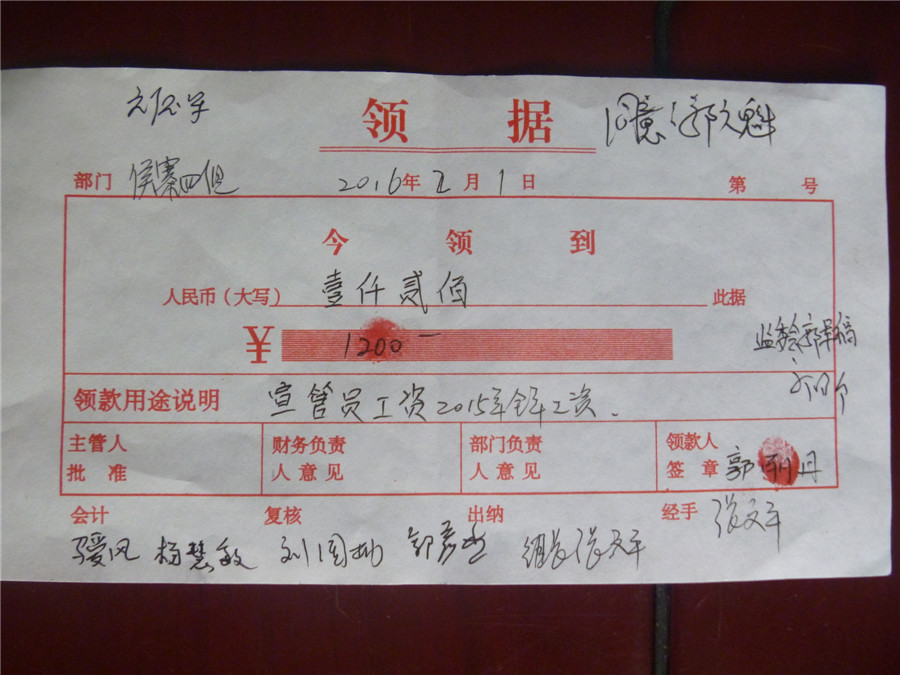 领 据 同意 郭文魁
部门 侯寨四组 2016年2月1日 第 号
今 领 到
人民币(大写) 壹仟贰佰 此据
¥ 1200一
监委会
领款用途说明 宣管员工资2015年全年工资.
主管人 财务负责 部门负责 领款人
批 准 人意见 人意见 签 章 郭 丹
会计 复核 出纳 经手 张文平
杨慧敏 刘国 组长张文平